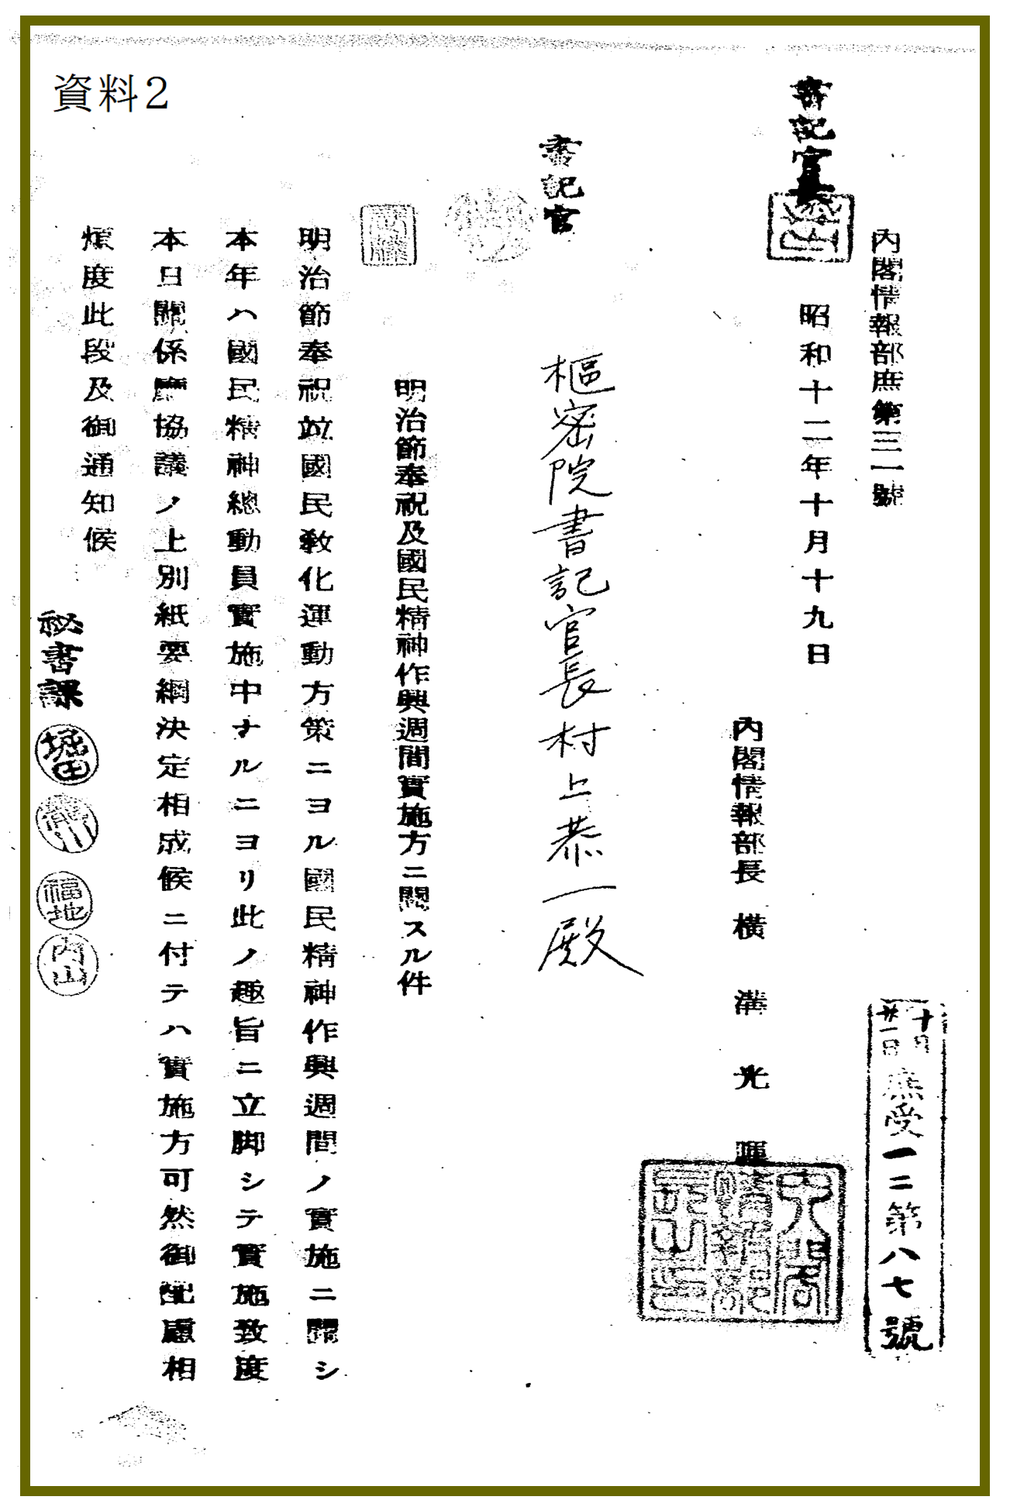 資料2
書記官長
内閣情報部庶第三一號
昭和十二年十月十九日
十月
廿一日
庶受一二第八七號
内閣情報部長 横溝光暉
書記官
樞密院書記官長村上恭一殿
明治節奉祝及國民精神作興週間實施方ニ關スル件
明治節奉祝竝國民敎化運動方策ニヨル國民精神作興週間ノ實施ニ關シ
本年ハ國民精神總動員實施中ナルニヨリ此ノ趣旨ニ立脚シテ實施致度
本日關係廳協議ノ上別紙要綱決定相成候ニ付テハ實施方可然御配慮相
煩度此段及御通知候
秘書課
堀田
福地
内山